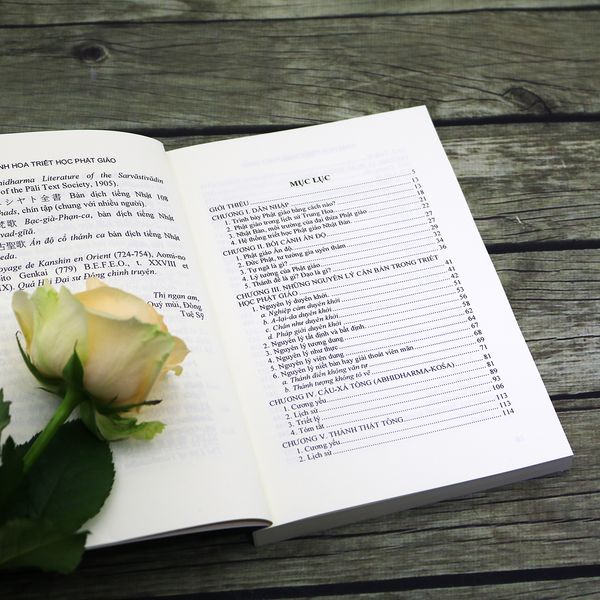 INH HOA TRIẾT HỌC PHẬT GIÁO
Literature of the Sarvāstivādin
of the Pāli Text Society, 1905).
シヤト全書 Bản dịch tiếng Nhật 108
chín tập (chung với nhiều người).
梵歌 Bạc-già-Phạn-ca, bản dịch tiếng Nhật
vad-gītā.
古聖歌 Ấn độ cổ thánh ca bản dịch tiếng Nhật
veda.
oyage de Kanshin en Orient (724-754), Aomi-no
ito Genkai (779) B.E.F.E.O., t. XXVIII et
IX). Quá Hải Đại sư Đông chinh truyện.
Thị ngạn am,
Quý mùi, Đông
Tuệ Sỹ
MỤC LỤC
GIỚI THIỆU 5
CHƯƠNG I. DẪN NHẬP 13
1. Trình bày Phật giáo bằng cách nào? 13
2. Phật giáo trong lịch sử Trung Hoa 18
3. Nhật Bản, môi trường của đại thừa Phật giáo 21
4. Hệ thống triết học Phật giáo Nhật Bản. 22
CHƯƠNG II. BỐI CẢNH ẤN ĐỘ 27
1. Phật giáo Ấn độ. 27
2. Đức Phật, tư tưởng gia uyên thâm 29
3. Tự ngã là gì? 32
4. Lý tưởng của Phật giáo 36
5. Thánh đế là gì? Đạo là gì?
CHƯƠNG III. NHỮNG NGUYÊN LÝ CĂN BẢN TRONG TRIẾT
HỌC PHẬT GIÁO 41
1. Nguyên lý duyên khởi 41
a. Nghiệp cảm duyên khởi 42
b. A-lại-da duyên khởi 51
c. Chân như duyên khởi 53
d. Pháp giới duyên khởi 56
2. Nguyên lý tất định và bất định 58
3. Nguyên lý tương dung 64
4. Nguyên lý như thực 67
5. Nguyên lý viên dung 68
6. Nguyên lý niết bàn hay giải thoát viên mãn 69
a. Thánh điển không văn tự 71
b. Thánh tượng không tô vẽ 81
CHƯƠNG IV. CÂU-XÁ TÔNG (ABHIDHARMA-KOŚA) 81
1. Cương yếu 86
2. Lịch sử 93
3. Triết lý 106
4. Tóm tắt 113
CHƯƠNG V. THÀNH THẬT TÔNG 113
1. Cương yếu 114
2. Lịch sử